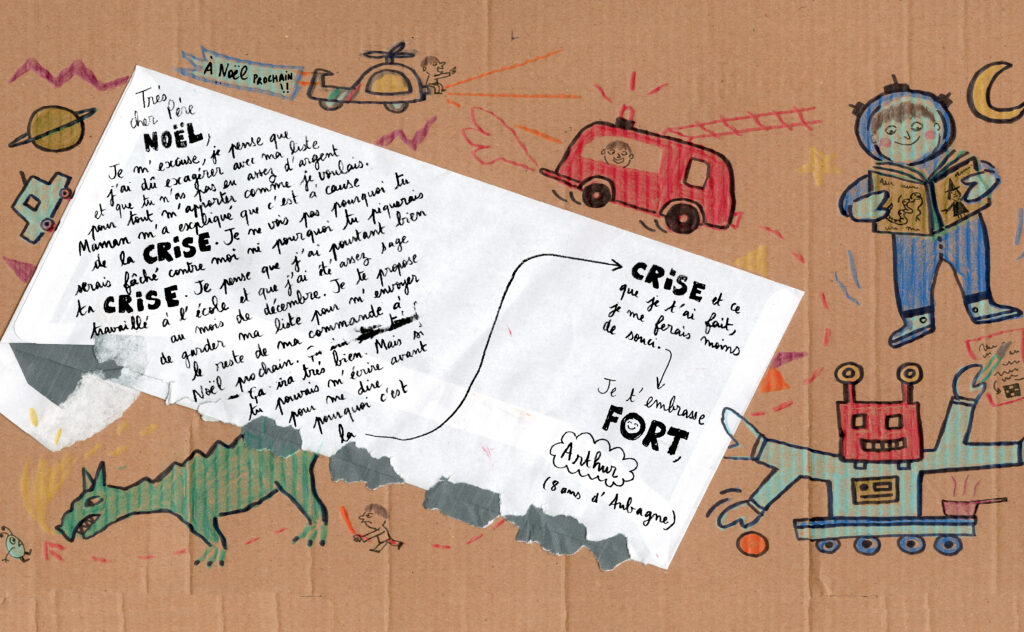 À Noël PROCHAIN !!
Très
cher Père
NOËL,
Je m'excuse, je pense que
j'ai dû exagérer avec ma liste
et que tu n'as pas eu assez d'argent
pour tout m'apporter comme je voulais.
Maman m'a expliqué que c'est à cause
de la CRISE. Je ne vois pas pourquoi tu
serais fâché contre moi ni pourquoi tu piquerais
ta CRISE. Je pense que j'ai pourtant bien
travaillé à l'école et que j'ai été assez sage
au mois de décembre. Je te propose
de garder ma liste pour m'envoyer
le reste de ma commande à
Noël prochain.
Ça ira très bien. Mais si
tu pouvais m'écrire avant
pour me dire
pourquoi c'est
la
CRISE et ce
que je t'ai fait,
je me ferais moins
de souci.
Je t'embrasse
FORT,
Arthur
(8 ans d'Aubagne)